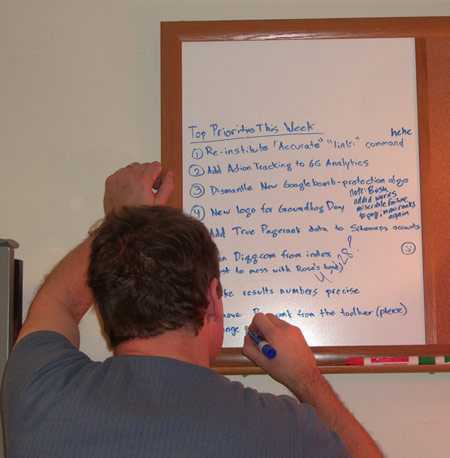 Top Priorities This Week
hehe
1 Re-institute "Accurate" "link:" command
2 Add Action Tracking to GG Analytics
3 Dismantle New Googlebomb-protection algo
4 New logo for Groundhog Day
note: Bush
added words
miserable failure
to page, now ranks
again
Add True Pagerank data to Sitemaps accounts
an Digg.com from index
t to mess with Rose's
results numbers precise
from the toolbar (please)